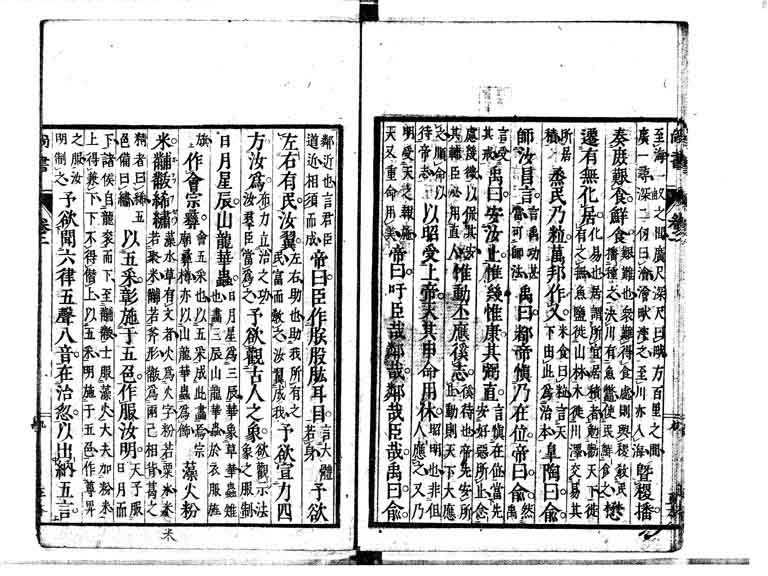 至海一畎之間廣尺深尺曰畎方百里之間
廣二尋深二仞曰澮澮畎深之至川亦入海
暨稷播
奏庶艱食鮮食
艱難也衆難得食處則與稷敎民
播種之決川有魚鱉使民鮮食之
懋
遷有無化居
化易也居謂所宜居積者勉勸天下徙
有之無魚鹽徙山林木徙川澤交易其
所居
積
烝民乃粒萬邦作乂
米食曰粒言天
下由此爲治本
皐陶曰俞
師汝昌言
言禹功甚
當可師法
禹曰都帝慎乃在位帝曰俞
然
禹
言受
其戒
禹曰安汝止惟幾惟康其弼直
言慎在位當先
安好惡所止念
慮幾微以保其安
其輔臣必用直人
惟動丕應徯志
徯待也帝先安所
止動則天下大應
之順命以
待帝志
以昭受上帝天其申命用休
昭明也非但
人應之又乃
明受天之報施
天又重命用美
帝曰吁臣哉鄰哉鄰哉臣哉禹曰俞
鄰近也言君臣
道近相須而成
帝曰臣作朕股肱耳目
言大體
若身
予欲
左右有民汝翼
左右助也助我所有之
民富而敎之汝翼成我
予欲宣力四
方汝爲
布力立治之功
汝羣臣當爲之
予欲觀古人之象
欲觀示法
象之服制
日月星辰山龍華蟲
日月星爲三辰華象草華蟲雉
也畫三辰山龍華蟲於衣服旌
旗
作會宗彝
會五采也以五采成此畫焉宗
廟彝樽亦以山龍華蟲爲飾
藻火粉
米黼黻絺繡
藻水草有文者火爲火字粉若粟氷米
若聚米黼若斧形黻爲兩己相背葛之
精者曰絺五
色備曰繡
以五采彰施于五色作服汝明
天子服
日月而
下諸侯自龍衮而下至黼黻士服藻火大夫加粉米
上得兼下下不得僭上以五采明施于五色作尊卑
之服汝
明制之
予欲聞六律五聲八音在治忽以出納五言
尚書
卷二